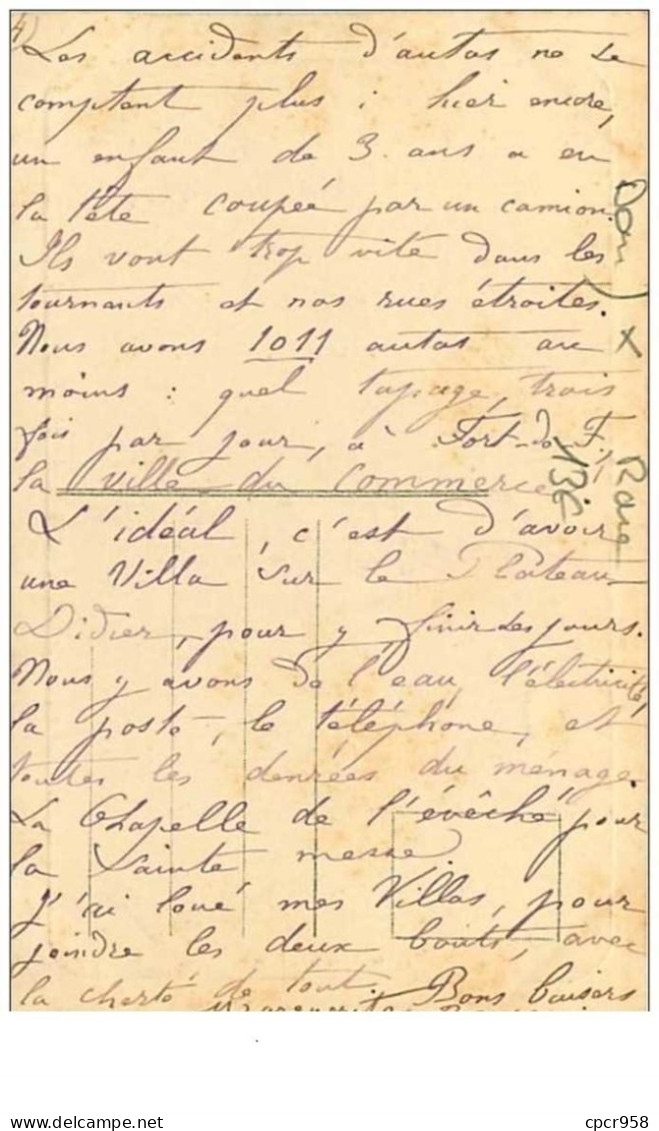 4)
Les accidents d'autos ne se
comptent plus ; hier encore,
un enfant de 3 ans a eu
la tête coupée par un camion.
Ils vont trop vite dans les
tournants et nos rues étroites.
Nous avons 1011 autos au
moins : quel tapage, trois
fois par jour, à Fort-de-F,
la ville du commerce !
L'idéal, c'est d'avoir
une Villa sur le Plateau
Didier, pour y finir ses jours.
Nous y avons de l'eau, l'électricité,
la poste, le téléphone, et
toutes les denrées du ménage.
La Chapelle de l'évêché, pour
la Sainte messe.
J'ai loué mes Villas, pour
joindre les deux bouts, avec
la cherté de tout. Bons baisers
Marguerite
Dom
x
Rare
13€
cpcr958